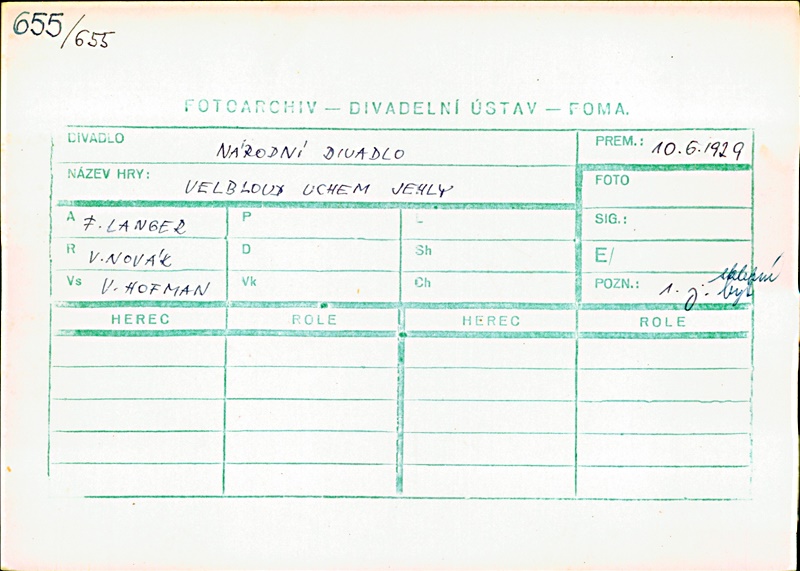 655/655
FOTOARCHIV — DIVADELNÍ ÚSTAV — FOMA.
DIVADLO NÁRODNÍ DIVADLO PREM.: 10.6.1929
NÁZEV HRY: VELBLOUD UCHEM JEHLY FOTO
A F. LANGER P L SIG.:
R V. NOVÁK D Sh E/
Vs V. HOFMAN Vk Ch POZN.: 1. j. byt
HEREC ROLE HEREC ROLE